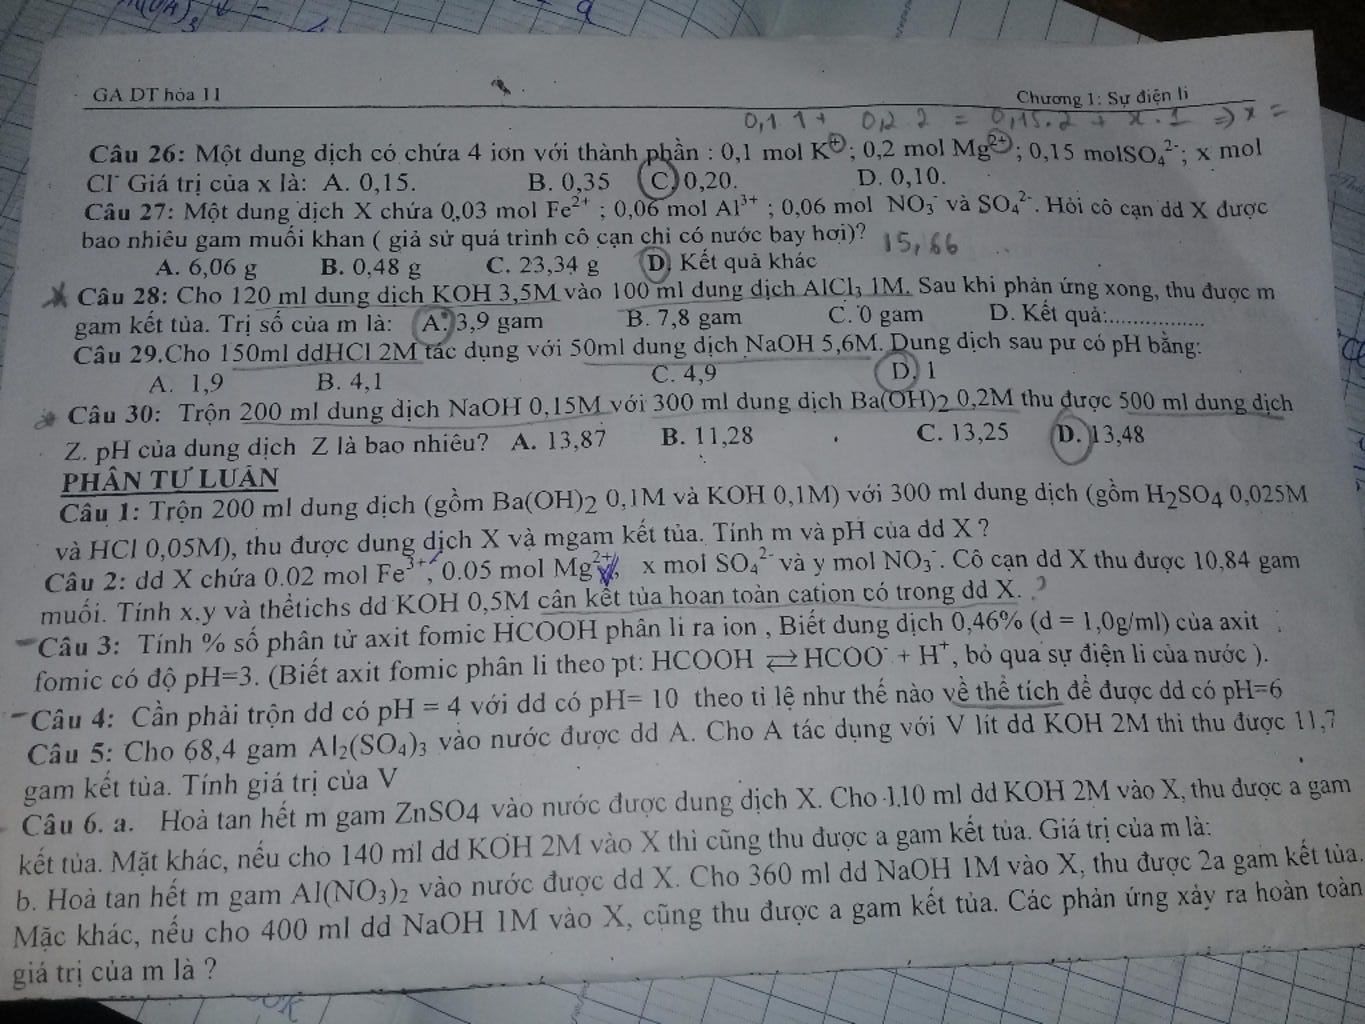 GA DT hóa 11
Chương 1: Sự điện li
0,1.1 + 0,2.2 = 0,15.2 + x.1 => x =
Câu 26: Một dung dịch có chứa 4 ion với thành phần : 0,1 mol K⁺; 0,2 mol Mg²⁺; 0,15 molSO₄²⁻; x mol
Cl⁻ Giá trị của x là: A. 0,15. B. 0,35 C. 0,20. D. 0,10.
Câu 27: Một dung dịch X chứa 0,03 mol Fe²⁺ ; 0,06 mol Al³⁺ ; 0,06 mol NO₃⁻ và SO₄²⁻. Hỏi cô cạn dd X được
bao nhiêu gam muối khan ( giả sử quá trình cô cạn chỉ có nước bay hơi)? 15,66
A. 6,06 g B. 0,48 g C. 23,34 g D. Kết quả khác
Câu 28: Cho 120 ml dung dịch KOH 3,5M vào 100 ml dung dịch AlCl₃ 1M. Sau khi phản ứng xong, thu được m
gam kết tủa. Trị số của m là: A. 3,9 gam B. 7,8 gam C. 0 gam D. Kết quả:.................
Câu 29.Cho 150ml ddHCl 2M tác dụng với 50ml dung dịch NaOH 5,6M. Dung dịch sau pư có pH bằng:
A. 1,9 B. 4,1 C. 4,9 D. 1
Câu 30: Trộn 200 ml dung dịch NaOH 0,15M với 300 ml dung dịch Ba(OH)₂ 0,2M thu được 500 ml dung dịch
Z. pH của dung dịch Z là bao nhiêu? A. 13,87 B. 11,28 C. 13,25 D. 13,48
PHẦN TỰ LUẬN
Câu 1: Trộn 200 ml dung dịch (gồm Ba(OH)₂ 0,1M và KOH 0,1M) với 300 ml dung dịch (gồm H₂SO₄ 0,025M
và HCl 0,05M), thu được dung dịch X và mgam kết tủa. Tính m và pH của dd X ?
Câu 2: dd X chứa 0.02 mol Fe³⁺, 0.05 mol Mg²⁺, x mol SO₄²⁻ và y mol NO₃⁻. Cô cạn dd X thu được 10,84 gam
muối. Tính x.y và thểtichs dd KOH 0,5M cân kết tủa hoan toàn cation có trong dd X. ?
Câu 3: Tính % số phân tử axit fomic HCOOH phân li ra ion , Biết dung dịch 0,46% (d = 1,0g/ml) của axit
fomic có độ pH=3. (Biết axit fomic phân li theo pt: HCOOH ⇄ HCOO⁻ + H⁺, bỏ qua sự điện li của nước ).
Câu 4: Cần phải trộn dd có pH = 4 với dd có pH= 10 theo tỉ lệ như thế nào về thể tích để được dd có pH=6
Câu 5: Cho 68,4 gam Al₂(SO₄)₃ vào nước được dd A. Cho A tác dụng với V lít dd KOH 2M thì thu được 11,7
gam kết tủa. Tính giá trị của V
Câu 6. a. Hoà tan hết m gam ZnSO4 vào nước được dung dịch X. Cho 110 ml dd KOH 2M vào X, thu được a gam
kết tủa. Mặt khác, nếu cho 140 ml dd KOH 2M vào X thì cũng thu được a gam kết tủa. Giá trị của m là:
b. Hoà tan hết m gam Al(NO₃)₂ vào nước được dd X. Cho 360 ml dd NaOH 1M vào X, thu được 2a gam kết tủa.
Mặc khác, nếu cho 400 ml dd NaOH 1M vào X, cũng thu được a gam kết tủa. Các phản ứng xảy ra hoàn toàn
giá trị của m là ?